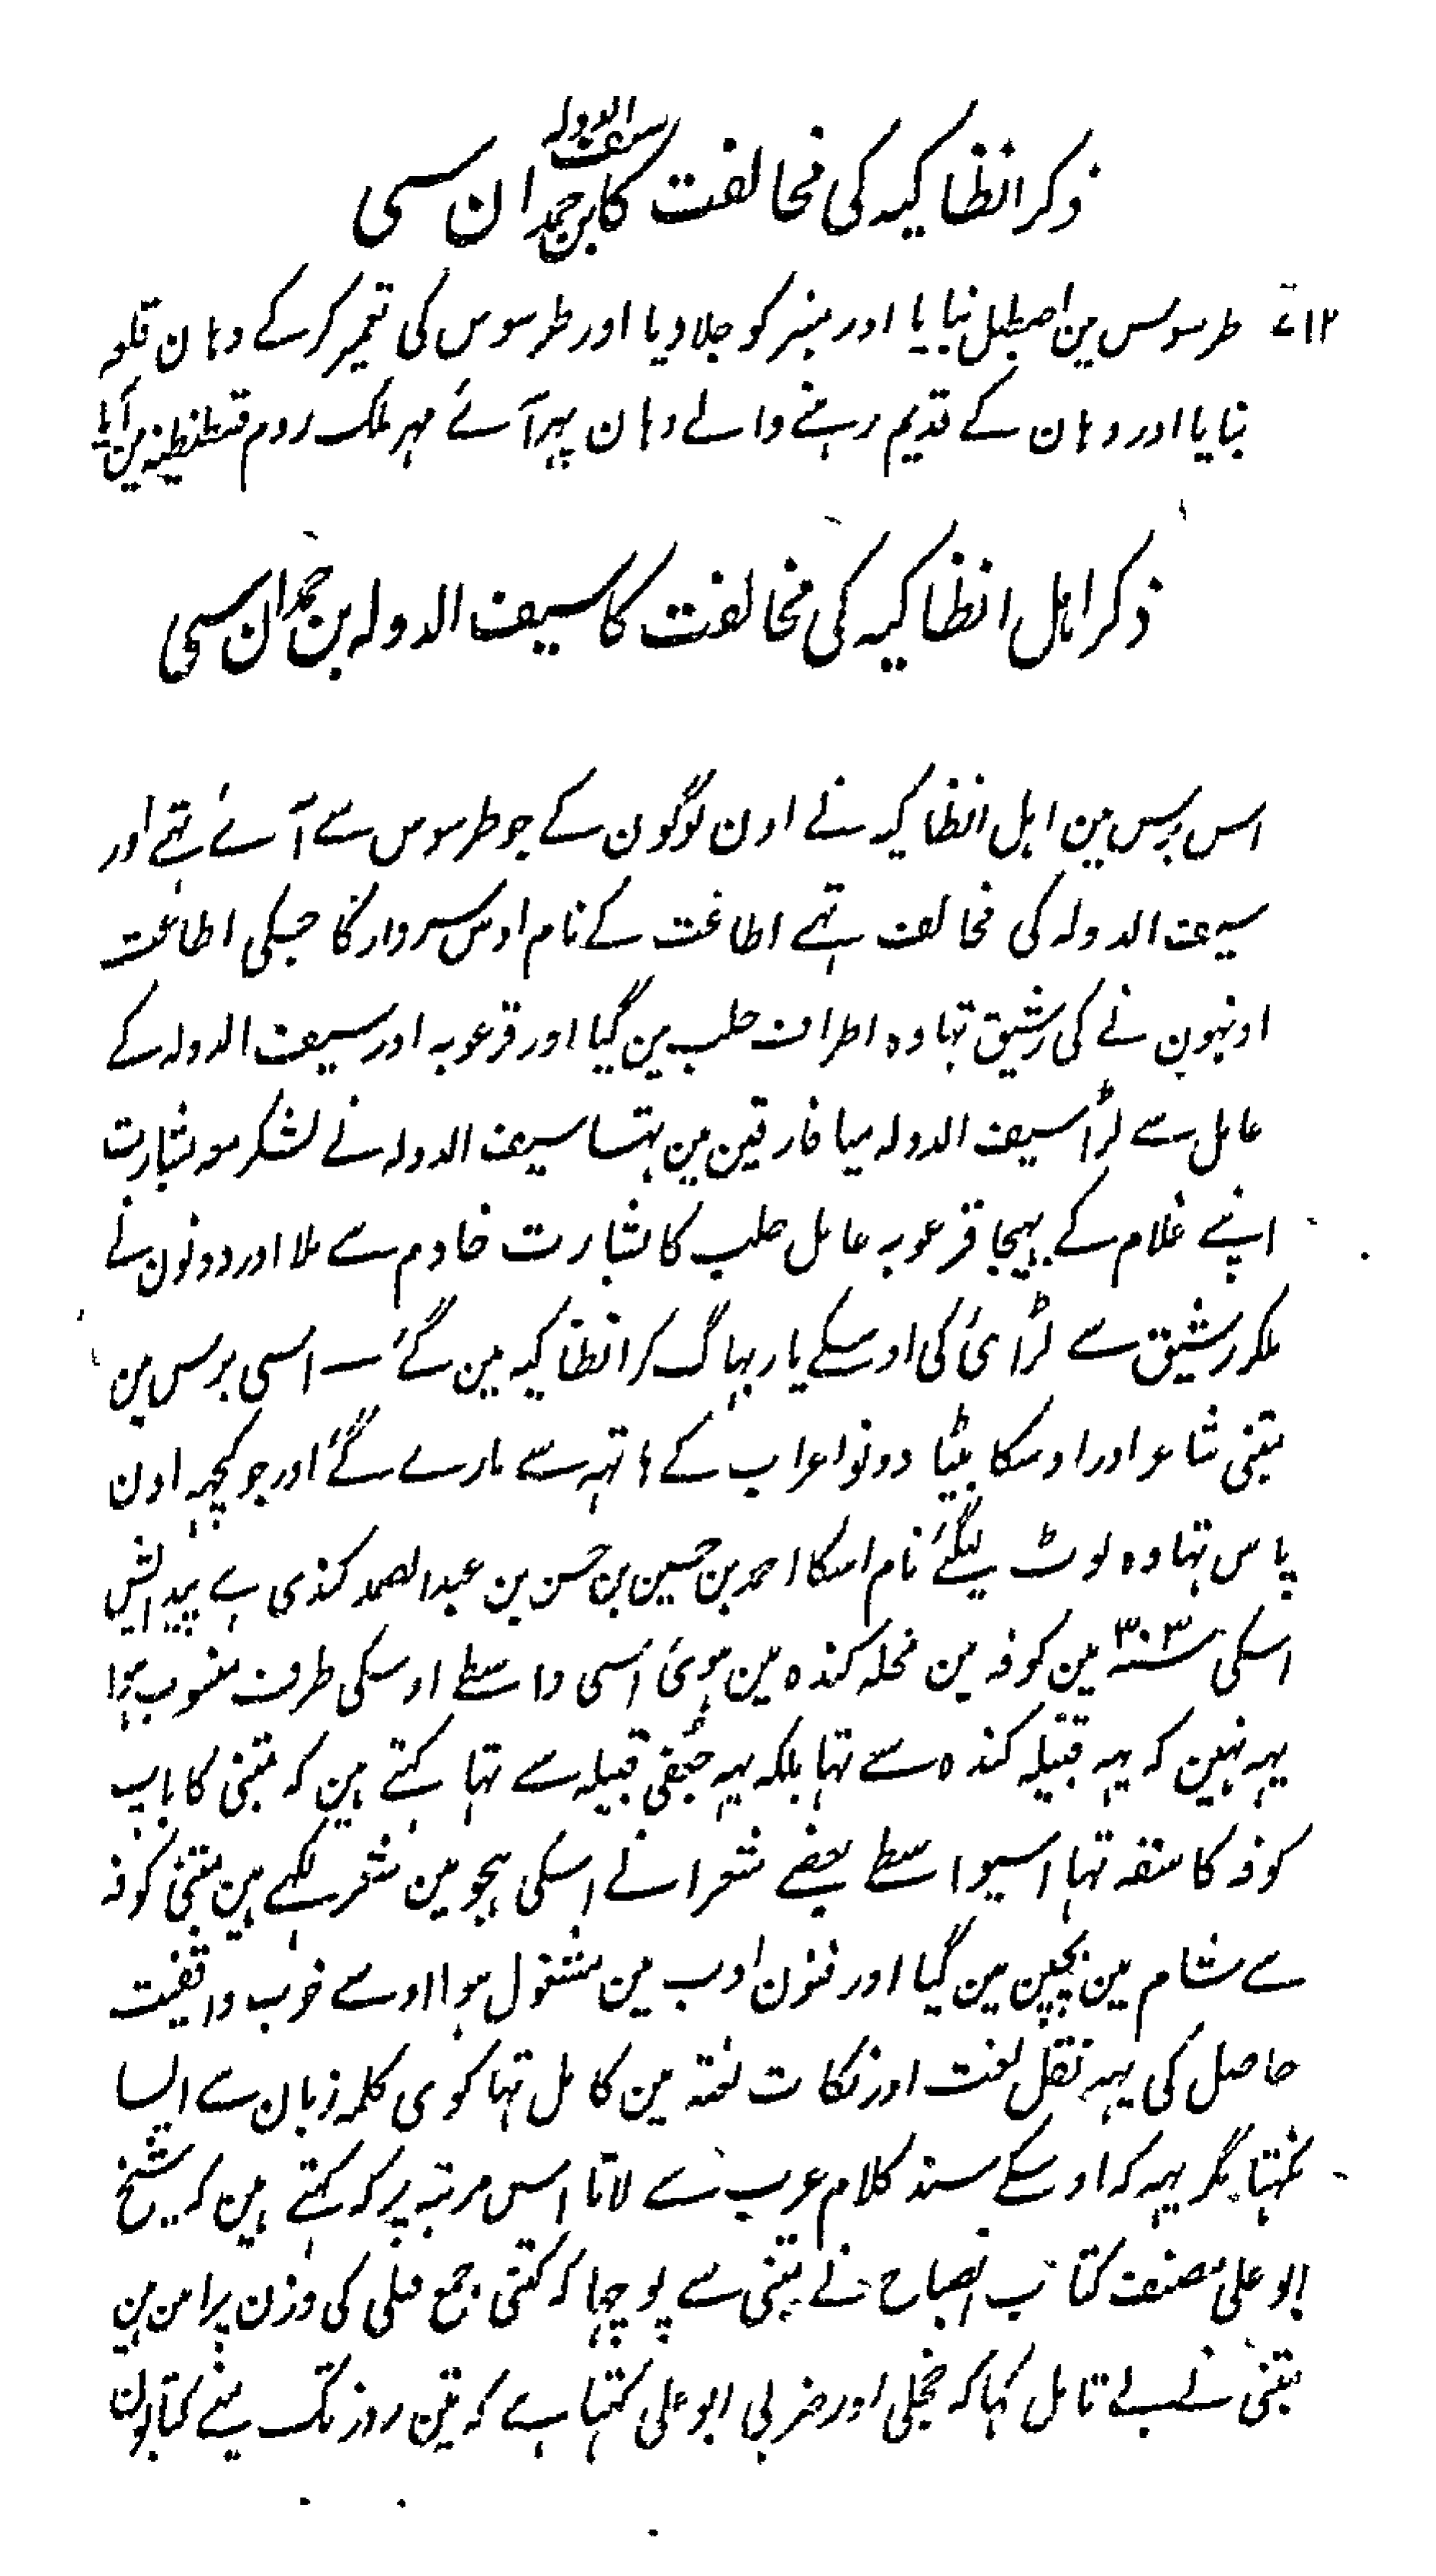 ذکر انطاکیہ کی مخالفت کا سیف الدولہ بن حمدان سی
۱۲ طرسوس مین اصطبل بنایا اور منبر کو جلادیا اور طرسوس کی تعمیر کرکے وہان قلعہ
بنایا اور وہان کے قدیم رہنے والے وہان پہر آئے پہر ملک روم قسطنطنیہ مین آیا
ذکر اہل انطاکیہ کی مخالفت کا سیف الدولہ بن حمدان سی
اس برس مین اہل انطاکیہ نے اون لوگون کے جو طرسوس سے آئے تہے اور
سیف الدولہ کی مخالف تہے اطاعت کے نام اوس سردار کا جسکی اطاعت
اونہون نے کی رشیق تہا وہ اطراف حلب مین گیا اور قرعویہ اور سیف الدولہ کے
عامل سے لڑا سیف الدولہ میافارقین مین تہا سیف الدولہ نے لشکر مع بشارت
اپنے غلام کے بہیجا قرعویہ عامل حلب کا بشارت خادم سے ملا اور دونون نے
ملکر رشیق سے لڑائی کی اوسکے یار بہاگ کر انطاکیہ مین گئے — اسی برس مین
متنبی شاعر اور اوسکا بیٹا دونو اعراب کے ہاتہہ سے مارے گئے اور جو کچہہ اون
پاس تہا وہ لوٹ لیگئے نام اسکا احمد بن حسین بن حسن بن عبد الصمد کندی ہے پیدایش
اسکی سنہ ۳۰۳ مین کوفہ مین محلہ کندہ مین ہوئی اسی واسطے اوسکی طرف منسوب ہوا
یہہ نہین کہ یہہ قبیلہ کندہ سے تہا بلکہ یہہ جعفی قبیلہ سے تہا کہتے ہین کہ متنبی کا باپ
کوفہ کا سقہ تہا اسیواسطے بعضے شعرا نے اسکی ہجو مین شعر لکہے ہین متنبی کوفہ
سے شام مین بچپن مین گیا اور فنون ادب مین مشغول ہوا اوسے خوب واقفیت
حاصل کی یہہ نقل لغت اور نکات لغتہ مین کامل تہا کوی کلمہ زبان سے ایسا
نکہتا مگر یہہ کہ اوسکے سند کلام عرب سے لاتا اس مرتبہ پر کہ کہتے ہین کہ شیخ
ابو علی مصنف کتاب ایضاح نے متنبی سے پوچہا کہ کتنی جمع فعلی کی وزن پر ہین
متنبی نے بے تامل کہا کہ حجلی اور ضربی ابو علی کہتا ہے کہ تین روز تک مینے کتابون